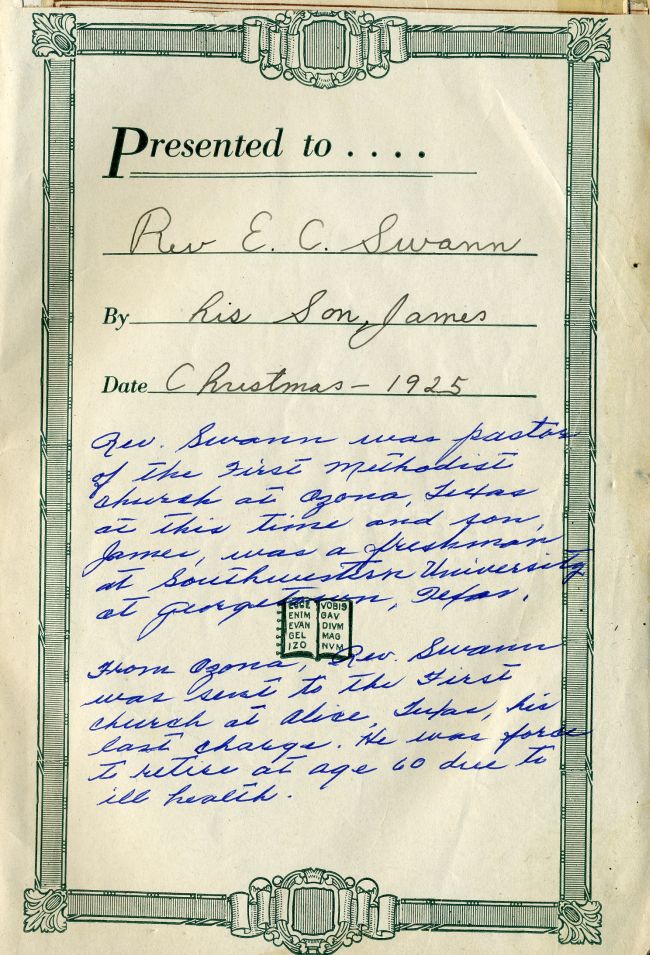 Presented to . . . .
Rev E. C. Swann
By his Son, James
Date Christmas - 1925
Rev. Swann was pastor
of the First Methodist
church at Ozona, Texas
at this time and son,
James, was a freshman
at Southwestern University
at Georgetown, Texas.
ECCE VOBIS
ENIM GAV
EVAN DIVM
GEL MAG
IZO NVM
From Ozona, Rev. Swann
was sent to the First
church at Alice, Texas, his
last charge. He was force
to retire at age 60 due to
ill health.